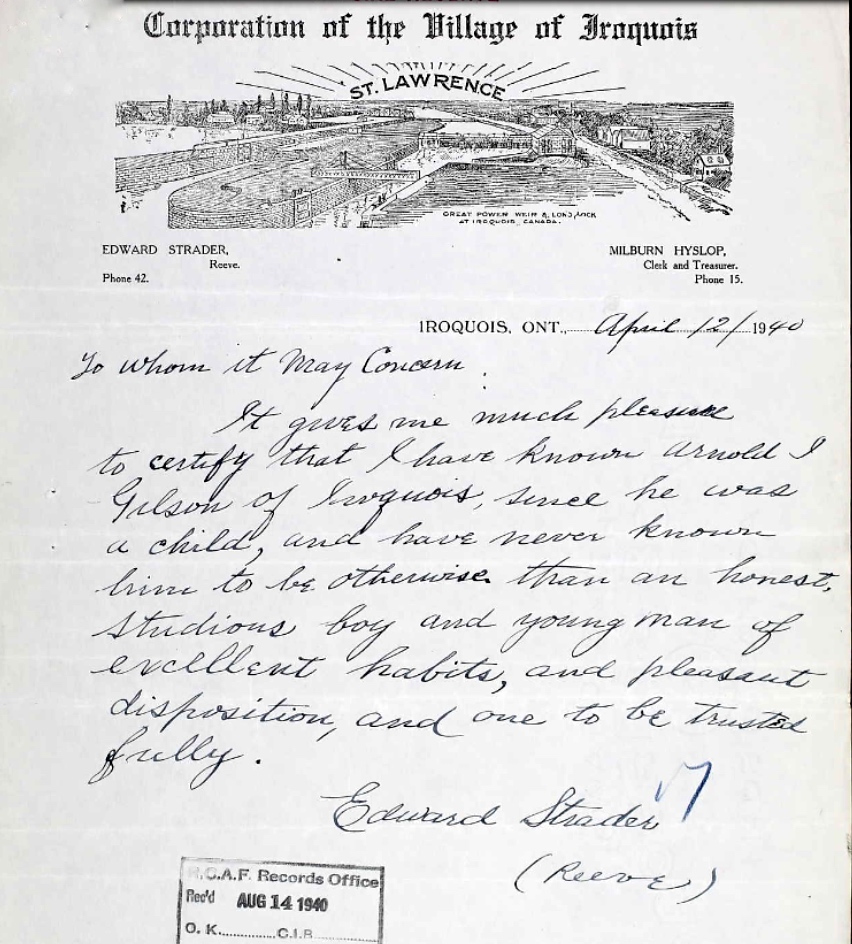 Corporation of the Village of Iroquois
ST. LAWRENCE
GREAT POWER WEIR & LONG LOCK
AT IROQUOIS, CANADA.
EDWARD STRADER,
Reeve.
Phone 42.
MILBURN HYSLOP,
Clerk and Treasurer.
Phone 15.
IROQUOIS, ONT., April 12/1940
To whom it May Concern.
It gives me much pleasure
to certify that I have known Arnold I
Gilson of Iroquois, since he was
a child, and have never known
him to be otherwise than an honest,
studious boy and young man of
excellent habits, and pleasant
disposition, and one to be trusted
fully.
Edward Strader
(Reeve)
R.C.A.F. Records Office
Rec'd AUG 14 1940
O. K.............C.I.B.............